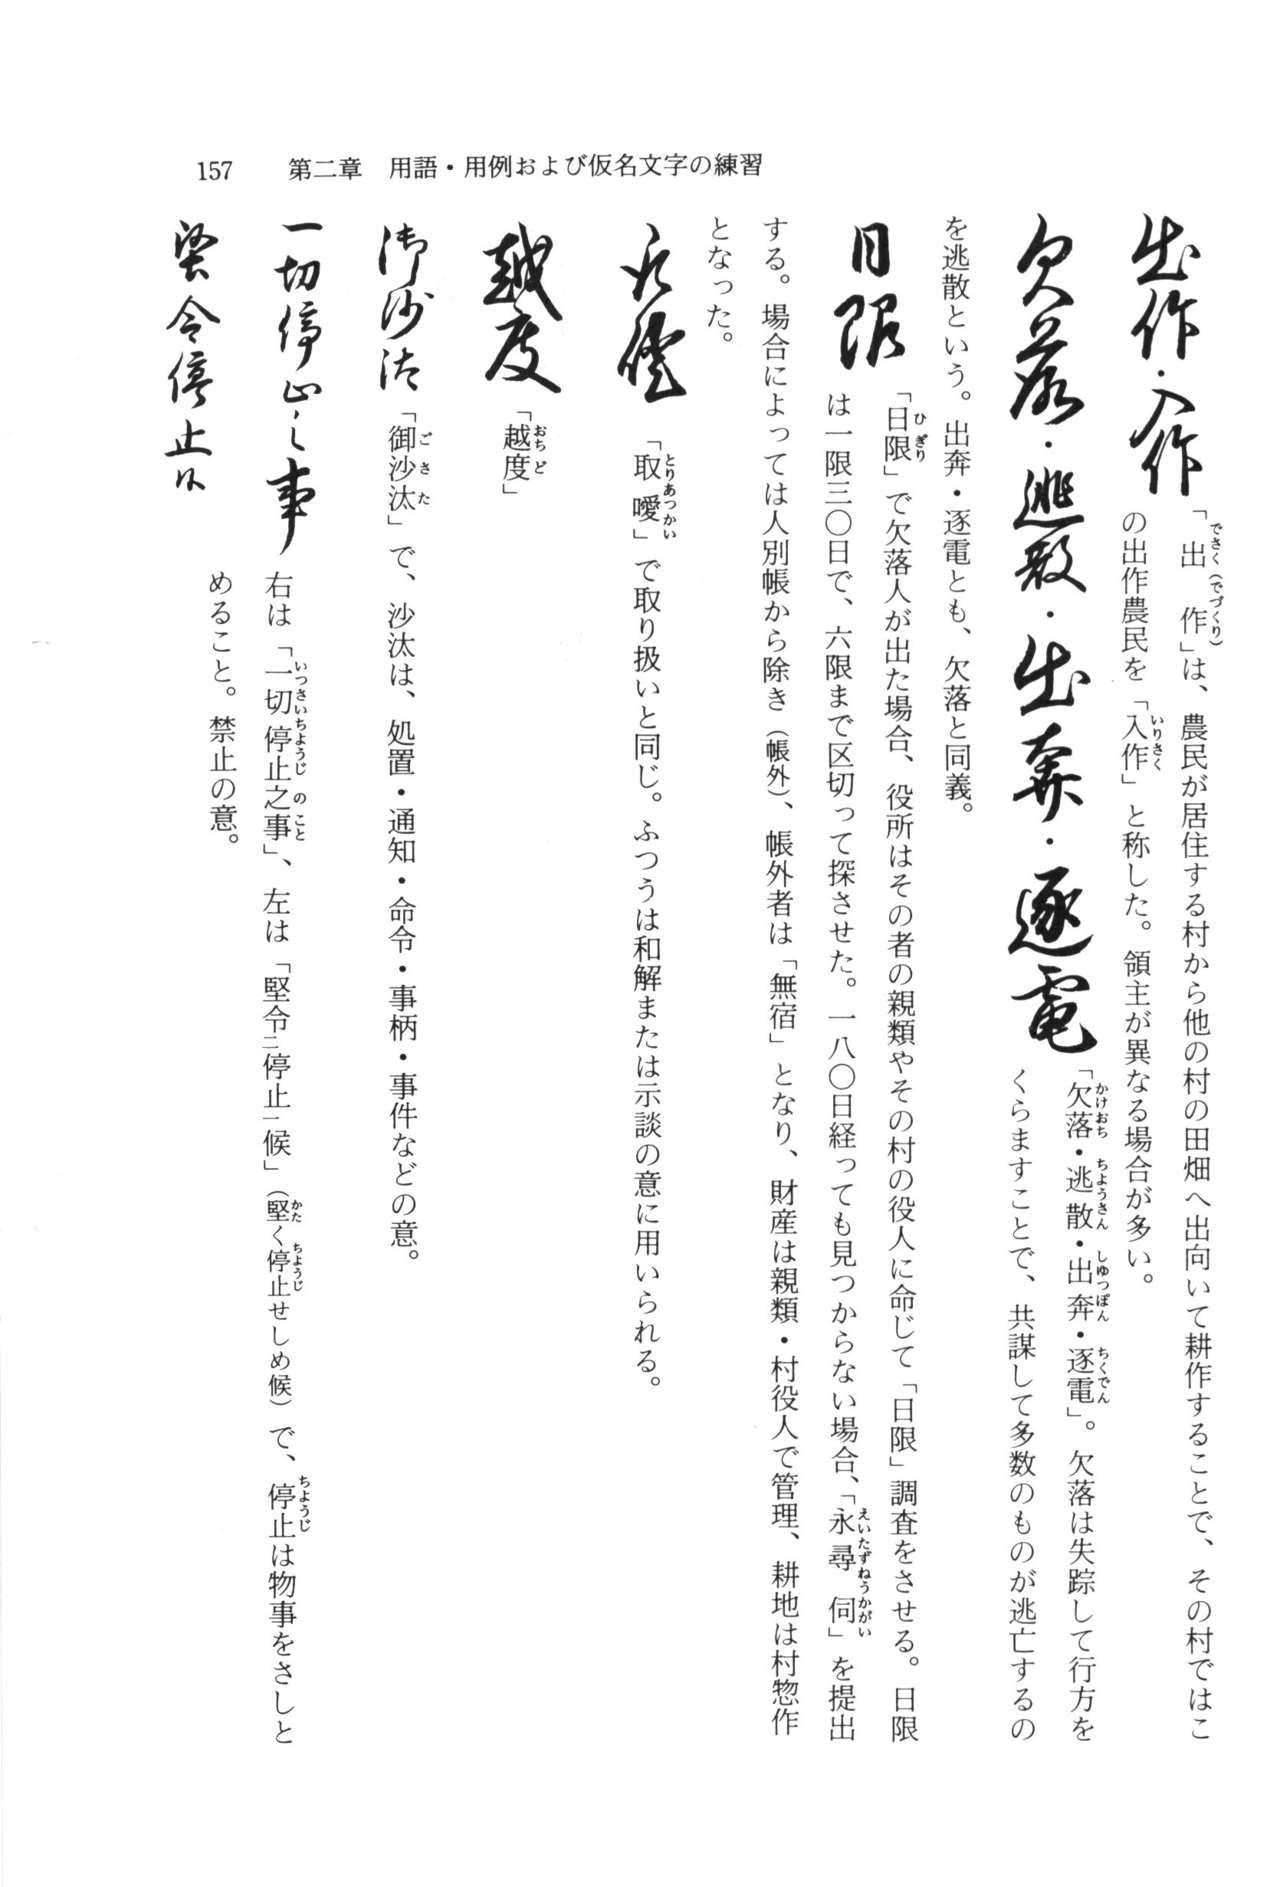 157　第二章　用語・用例および仮名文字の練習
出作・入作
「出作」は、農民が居住する村から他の村の田畑へ出向いて耕作することで、その村ではこ
の出作農民を「入作」と称した。領主が異なる場合が多い。
欠落・逃散・出奔・逐電
「欠落・逃散・出奔・逐電」。欠落は失踪して行方を
くらますことで、共謀して多数のものが逃亡するの
を逃散という。出奔・逐電とも、欠落と同義。
日限
「日限」で欠落人が出た場合、役所はその者の親類やその村の役人に命じて「日限」調査をさせる。日限
は一限三〇日で、六限まで区切って探させた。一八〇日経っても見つからない場合、「永尋伺」を提出
する。場合によっては人別帳から除き（帳外）、帳外者は「無宿」となり、財産は親類・村役人で管理、耕地は村惣作
となった。
取噯
「取噯」で取り扱いと同じ。ふつうは和解または示談の意に用いられる。
越度
「越度」
御沙汰
「御沙汰」で、沙汰は、処置・通知・命令・事柄・事件などの意。
一切停止之事
堅令停止候
右は「一切停止之事」、左は「堅令㆓停止㆒候」（堅く停止せしめ候）で、停止は物事をさしと
めること。禁止の意。